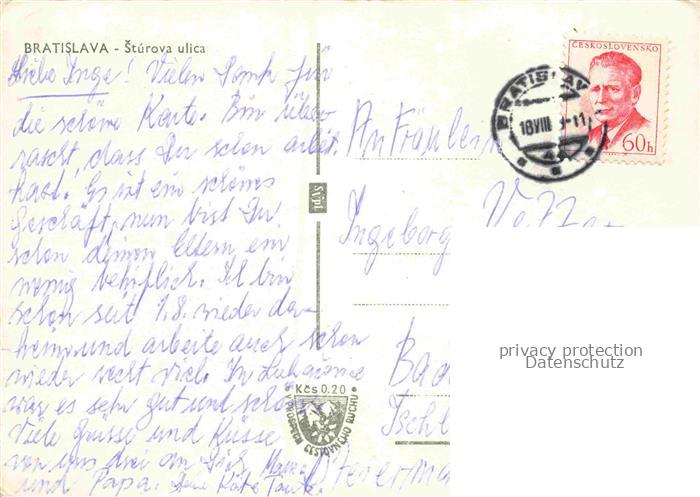 BRATISLAVA - Štúrova ulica
Liebe Inge! Vielen Dank für
die schöne Karte. Bin über-
rascht, dass Du schon arbeit.
hast. Es ist ein schönes
Geschäft, nun bist Du
schon deinen Eltern ein
wenig behilflich. Ich bin
schon seit 1.8. wieder da-
heim und arbeite auch schon
wieder recht viel. In Luhačovice
war es sehr gut und schön.
Viele Grüsse und Küsse
von uns drei an Dich, Mama
und Papa. Deine Käte Tante.
Sypt
ČESKOSLOVENSKO
60h
BRATISLAVA
18VIII
4
An Fräulein
Ingeborg
Kčs 0.20
V PROSPECH CESTOVNÉHO RUCHU
privacy protection
Datenschutz